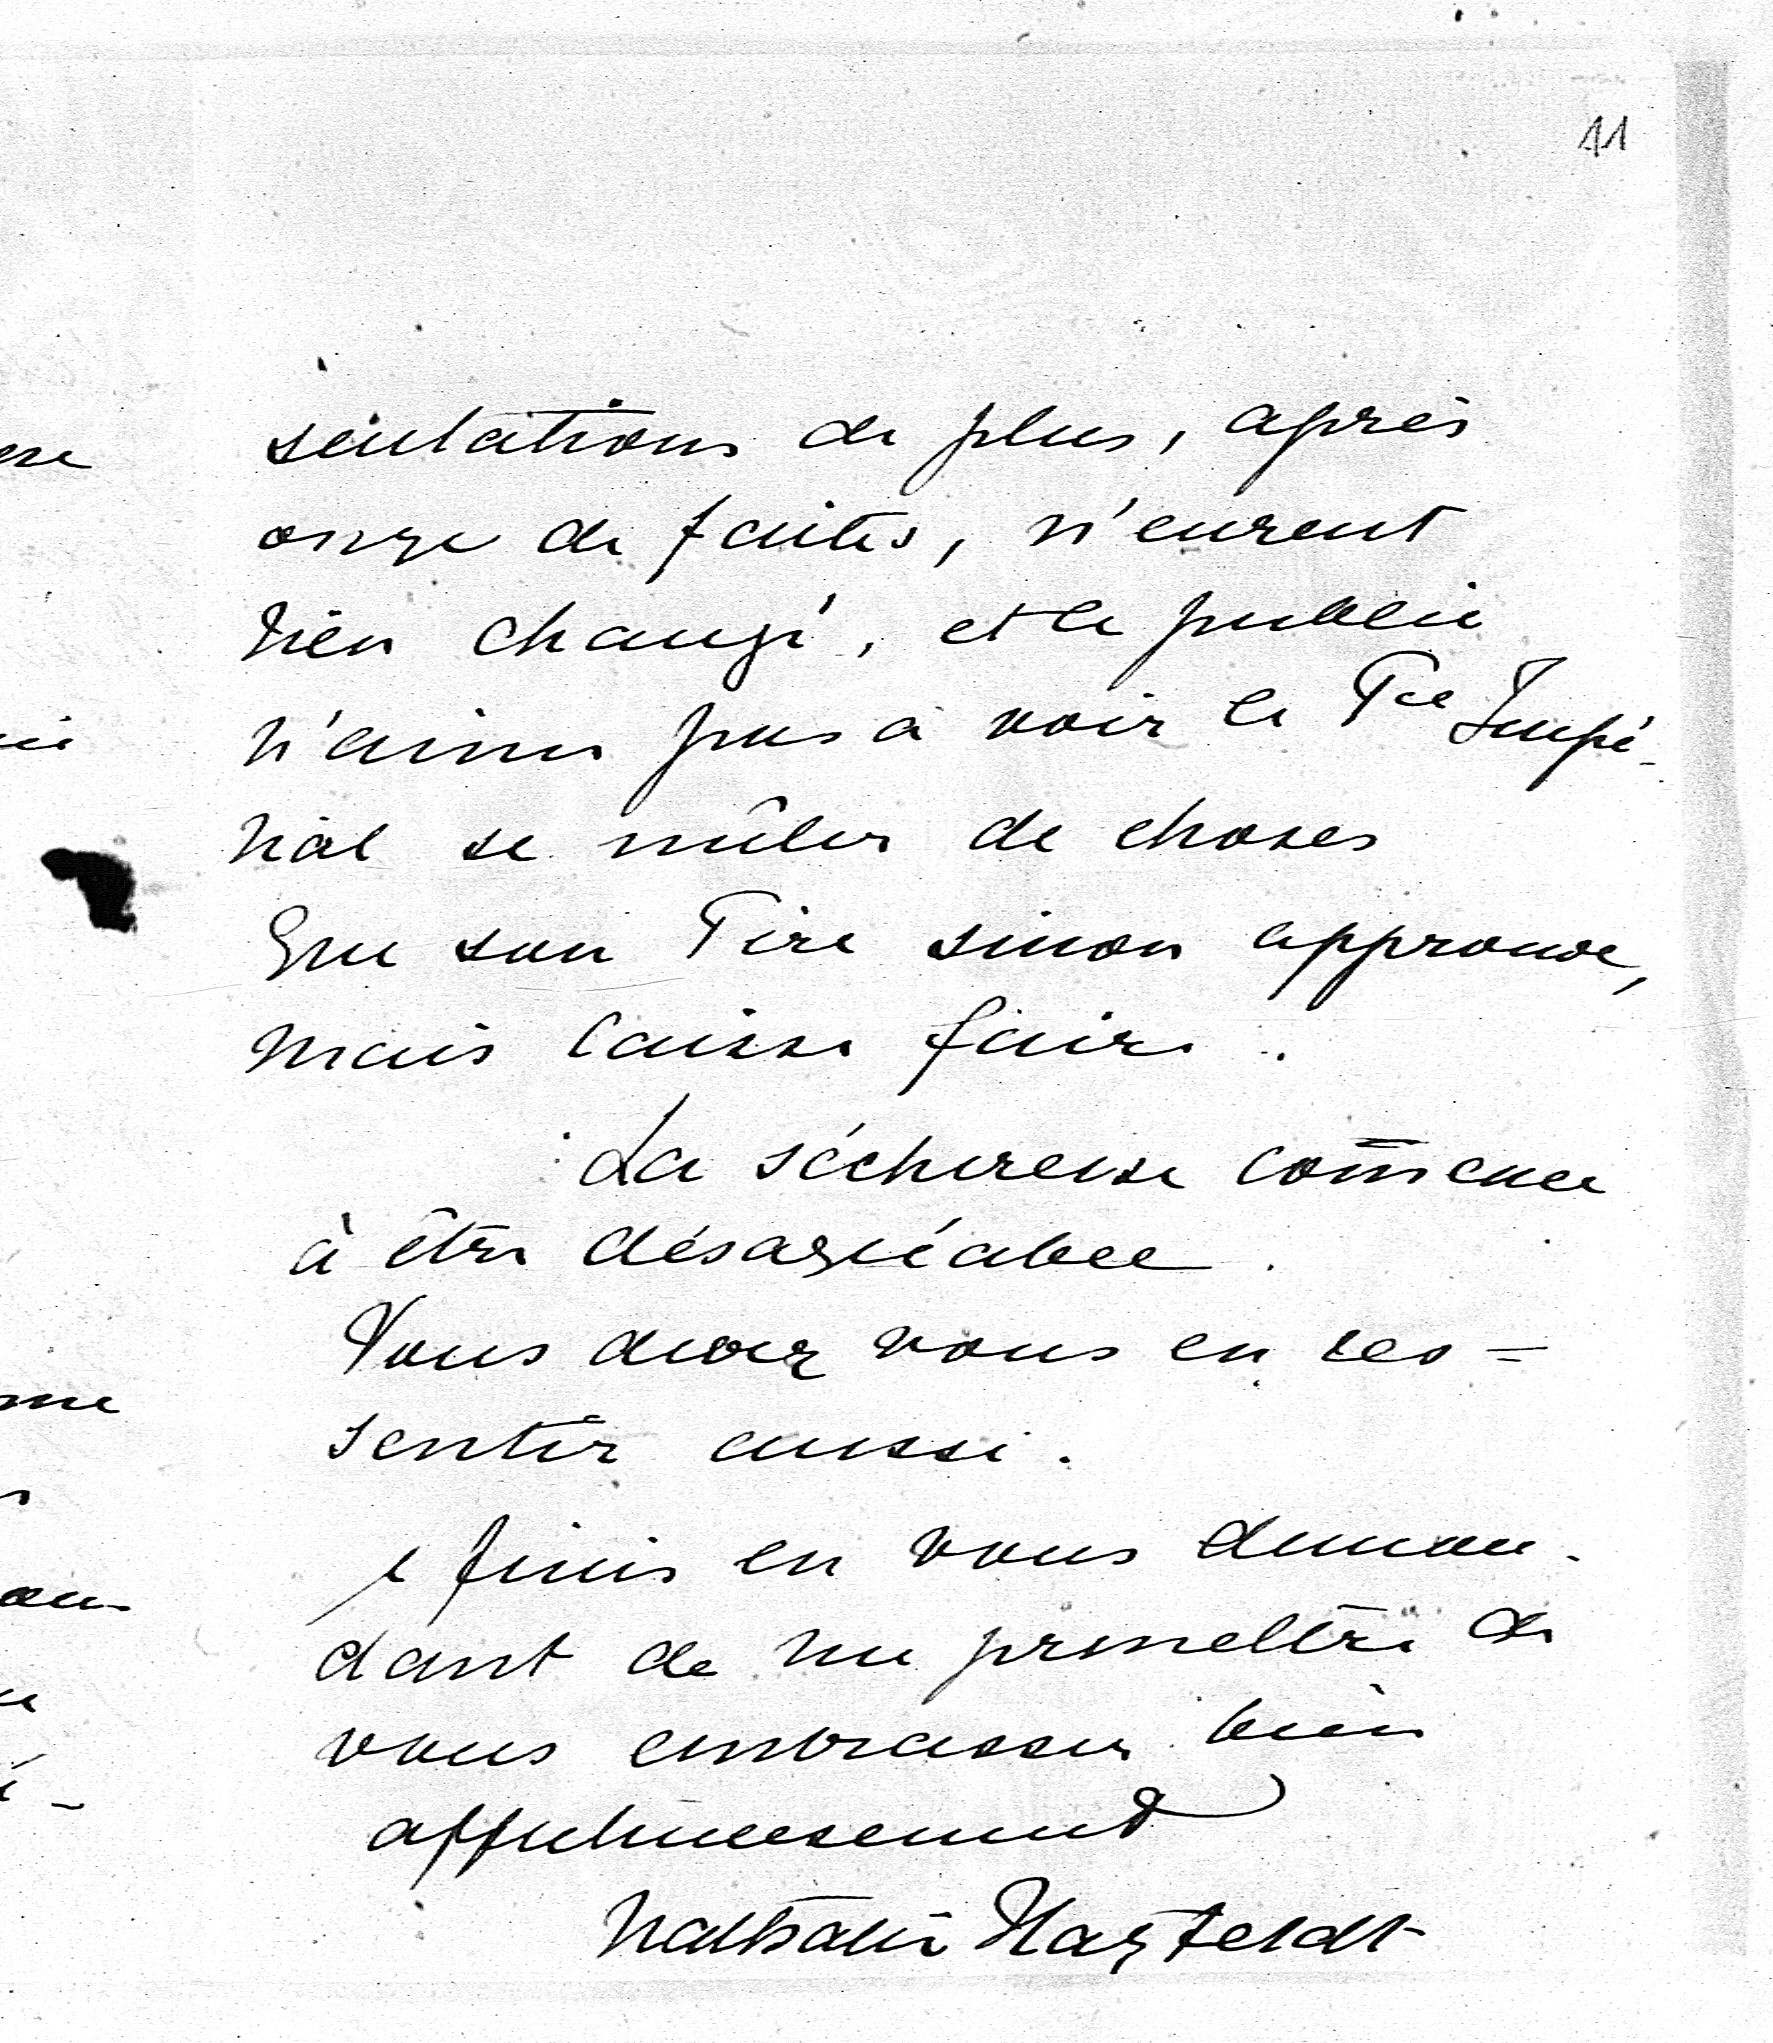 41
sentations de plus, après
onze de faites, n'eurent
rien changé, et le public
n'aime pas à voir le Pce Impé-
rial se mêler de choses
que son Père sinon approuve,
mais laisse faire.
La sécheresse commence
à être désagréable.
Vous devez vous en res=
sentir aussi.
Je finis en vous deman-
dant de me permettre de
vous embrasser bien
affectueusement
Nathalie Hazfeldt